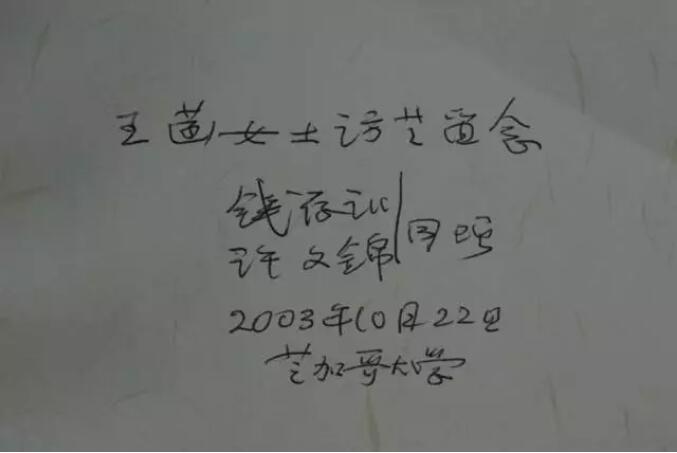 王茵女士访芝留念
钱存训
许文锦 同赠
2003年10月22日
芝加哥大学